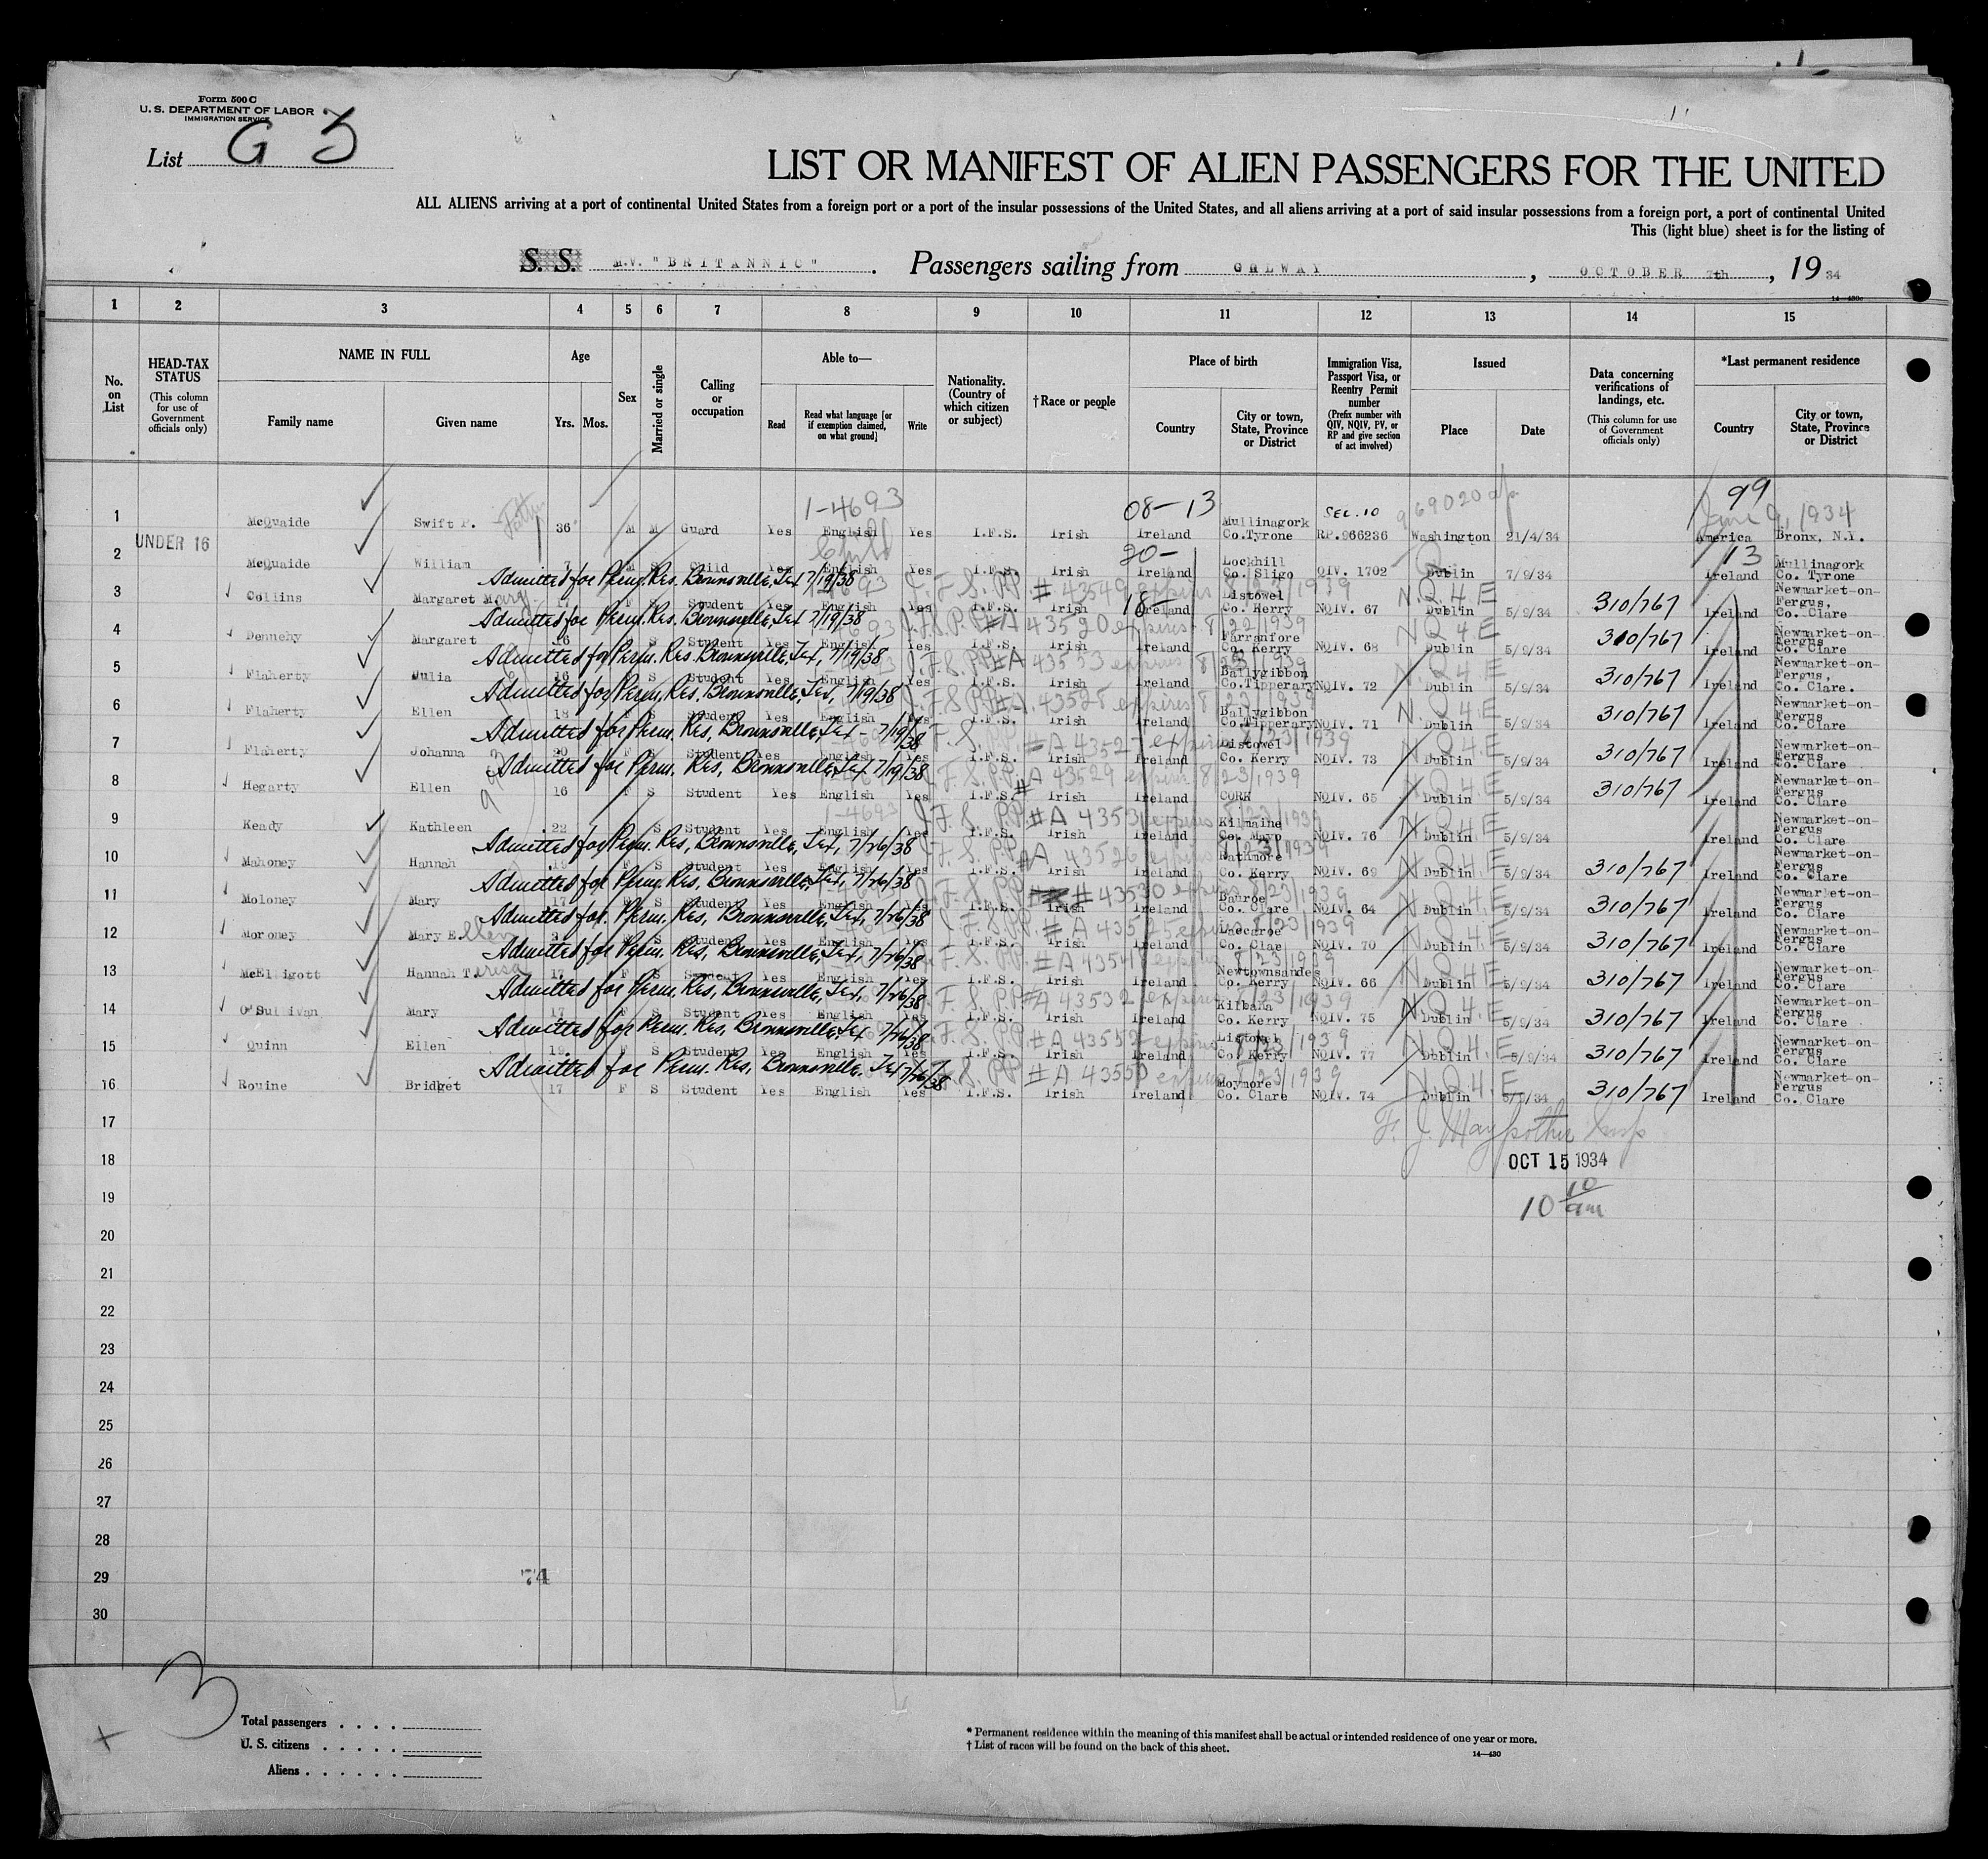 Form 500 C
U. S. DEPARTMENT OF LABOR
IMMIGRATION SERVICE
List G 3
LIST OR MANIFEST OF ALIEN PASSENGERS FOR THE UNITED
ALL ALIENS arriving at a port of continental United States from a foreign port or a port of the insular possessions of the United States, and all aliens arriving at a port of said insular possessions from a foreign port, a port of continental United
This (light blue) sheet is for the listing of
S. S. M.V. "BRITANNIC" . Passengers sailing from GALWAY , OCTOBER 7th , 19 34
14—430c
1 2 3 4 5 6 7 8 9 10 11 12 13 14 15
No. on List
HEAD-TAX STATUS (This column for use of Government officials only)
NAME IN FULL Family name Given name
Age Yrs. Mos.
Sex
Married or single
Calling or occupation
Able to— Read Read what language [or if exemption claimed, on what ground] Write
Nationality. (Country of which citizen or subject)
†Race or people
Place of birth Country City or town, State, Province or District
Immigration Visa, Passport Visa, or Reentry Permit number (Prefix number with QIV, NQIV, PV, or RP and give section of act involved)
Issued Place Date
Data concerning verifications of landings, etc. (This column for use of Government officials only)
*Last permanent residence Country City or town, State, Province or District
1-4693 08-13 SEC. 10 969020 99 June 9, 1934
1 McQuaide Swift P. 36 M M Guard Yes English Yes I.F.S. Irish Ireland Mullinagork Co.Tyrone RP.966236 Washington 21/4/34 America Bronx, N.Y.
UNDER 16 Child 20- 13
2 McQuaide William 7 M S Child Yes English Yes I.F.S. Irish Ireland Lockhill Co. Sligo QIV. 1702 Dublin 7/9/34 Ireland Mullinagork Co. Tyrone
Admitted for Perm. Res. Brownsville, Tex 7/19/38 I.F.S. PP. # 43549 expires 8/23/1939
3 Collins Margaret Mary 17 F S Student Yes English Yes I.F.S. Irish 18- Ireland Listowel Co. Kerry NQIV. 67 N.Q 4.E Dublin 5/9/34 310/767 Ireland Newmarket-on-Fergus, Co. Clare
Admitted for Perm. Res. Brownsville, Tex 7/19/38 I.F.S. PP. #A 43520 expires 8/22/1939
4 Dennehy Margaret 16 S Student Yes English Yes I.F.S. Irish Ireland Farranfore Co. Kerry NQIV. 68 N Q 4.E Dublin 5/9/34 310/767 Ireland Newmarket-on-Fergus Co. Clare
Admitted for Perm. Res. Brownsville, Tex, 7/19/38 I.F.S. PP. #A 43553 expires 8/23/1939
5 Flaherty Julia 16 S Student Yes English Yes I.F.S. Irish Ireland Ballygibbon Co.Tipperary NQIV. 72 N.Q 4.E Dublin 5/9/34 310/767 Ireland Newmarket-on-Fergus, Co. Clare.
Admitted for Perm. Res. Brownsville, Tex, 7/19/38 I.F.S PP. #A. 43528 expires 8/22/1939
6 Flaherty Ellen 18 S Student Yes English Yes I.F.S. Irish Ireland Ballygibbon Co.Tipperary NQIV. 71 N Q 4.E Dublin 5/9/34 310/767 Ireland Newmarket-on-Fergus Co. Clare
Admitted for Perm. Res, Brownsville, Tex - 7/19/38 I.F.S. PP. #A 43527 expires 8/23/1939
7 Flaherty Johanna 20 F Student Yes English Yes I.F.S. Irish Ireland Listowel Co. Kerry NQIV. 73 N Q 4.E Dublin 5/9/34 310/767 Ireland Newmarket-on-Fergus Co. Clare
Admitted for Perm. Res, Brownsville, Tex 7/19/38 I.F.S. PP. #A 43529 expires 8/23/1939
8 Hegarty Ellen 16 F S Student Yes English Yes I.F.S. Irish Ireland CORK NQIV. 65 N Q 4.E Dublin 5/9/34 310/767 Ireland Newmarket-on-Fergus Co. Clare
1-4693 I.F.S. PP. #A 43531 expires 8/23/1939
9 Keady Kathleen 22 S Student Yes English Yes I.F.S. Irish Ireland Kilmaine Co. Mayo NQIV. 76 N Q 4.E Dublin 5/9/34 Ireland Newmarket-on-Fergus Co. Clare
Admitted for Perm. Res, Brownsville, Tex, 7/26/38 I.F.S. PP. #A 43526 expires 8/23/1939
10 Mahoney Hannah 19 F S Student Yes English Yes I.F.S. Irish Ireland Rathmore Co. Kerry NQIV. 69 N Q 4.E Dublin 5/9/34 310/767 Ireland Newmarket-on-Fergus Co. Clare
Admitted for Perm. Res, Brownsville, Tex, 7/26/38 I.F.S. PP. # 43530 expires 8/23/1939
11 Moloney Mary 17 F S Student Yes English Yes I.F.S. Irish Ireland Co. Clare NQIV. 64 N Q 4.E Dublin 5/9/34 310/767 Ireland Newmarket-on-Fergus Co. Clare
Admitted for. Perm. Res, Brownsville, Tex, 7/26/38 I.F.S. PP. #A 43525 expires 8/23/1939
12 Moroney Mary Ellen S Student Yes English Yes I.F.S. Irish Ireland Laccaroe Co. Clae NQIV. 70 N Q 4.E Dublin 5/9/34 310/767 Ireland Newmarket-on-Fergus Co. Clare
Admitted for Perm. Res, Brownsville, Tex, 7/26/38 I.F.S. PP. #A expires 8/23/1939
13 McElligott Hannah Teresa 17 F S Student Yes English Yes I.F.S. Irish Ireland Newtownsandes Co. Kerry NQIV. 66 N Q 4.E Dublin 5/9/34 310/767 Ireland Newmarket-on-Fergus Co. Clare
Admitted for Perm. Res, Brownsville, Tex, 7/26/38 I.F.S. PP. #A 43532 expires 8/23/1939
14 O'Sullivan Mary 17 F S Student Yes English Yes I.F.S. Irish Ireland Co. Kerry NQIV. 75 N Q 4.E Dublin 5/9/34 310/767 Ireland Newmarket-on-Fergus Co. Clare
Admitted for Perm. Res, Brownsville, Tex 7/26/38 I.F.S. PP. #A 43552 expires 8/23/1939
15 Quinn Eilen 19 F S Student Yes English Yes I.F.S. Irish Ireland Listowel Co. Kerry NQIV. 77 N Q 4.E Dublin 5/9/34 310/767 Ireland Newmarket-on-Fergus Co. Clare
Admitted for Perm. Res, Brownsville, Tex 7/26/38 I.F.S. PP. #A 43550 expires 8/23/1939
16 Rouine Bridget 17 F S Student Yes English Yes I.F.S. Irish Ireland Moymore Co. Clare NQIV. 74 N Q 4.E Dublin 5/9/34 310/767 Ireland Newmarket-on-Fergus Co. Clare
17 F. J.
18 OCT 15 1934
19 10 10/am
20
21
22
23
24
25
26
27
28
29 74
30
3
Total passengers . . . .
U. S. citizens . . . . .
Aliens . . . . . .
* Permanent residence within the meaning of this manifest shall be actual or intended residence of one year or more.
† List of races will be found on the back of this sheet.
14—430